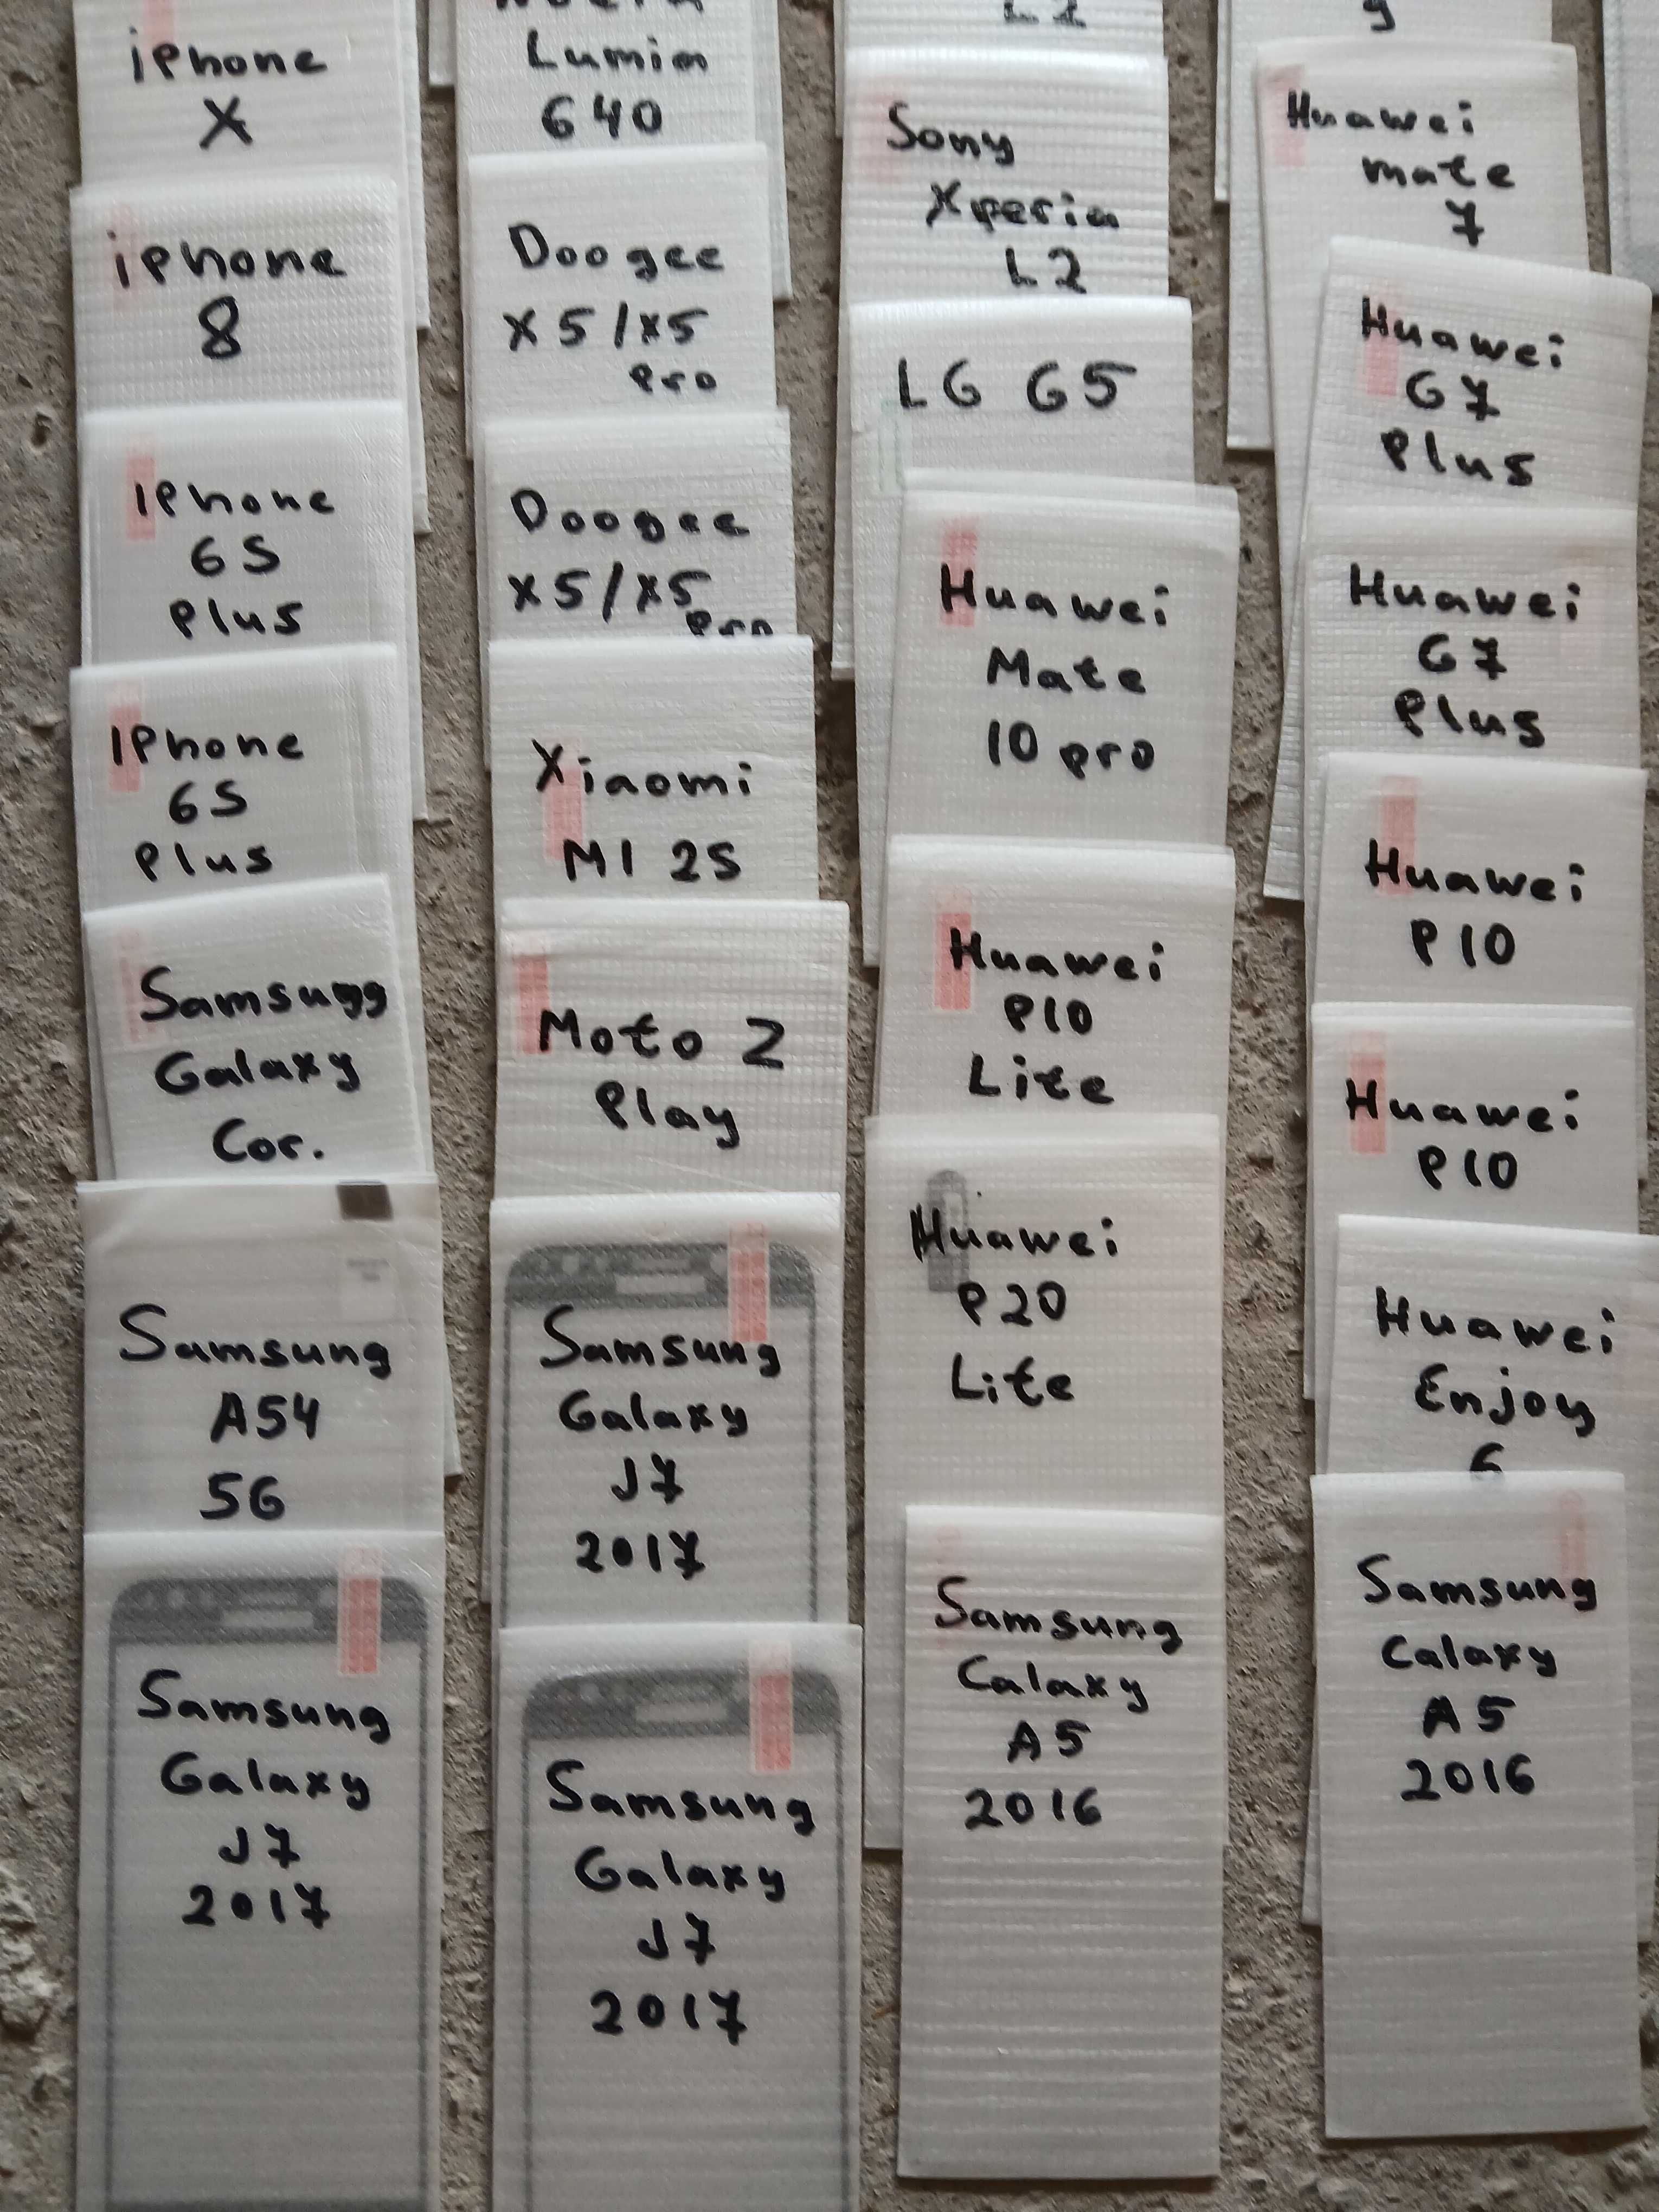 iphone
X
iphone
8
iphone
6S
plus
iphone
6S
plus
Samsugg
Galaxy
Cor.
Samsung
A54
5G
Samsung
Galaxy
J7
2017
Lumia
640
Doogee
x5/x5
pro
Doogee
x5/x5
pro
Xiaomi
MI 2S
Moto Z
Play
Samsung
Galaxy
J7
2017
Samsung
Galaxy
J7
2017
Sony
Xperia
L2
LG G5
Huawei
Mate
10 pro
Huawei
P10
Lite
Huawei
P20
Lite
Samsung
Calaxy
A5
2016
Huawei
mate
7
Huawei
G7
Plus
Huawei
G7
Plus
Huawei
P10
Huawei
P10
Huawei
Enjoy
6
Samsung
Calaxy
A5
2016